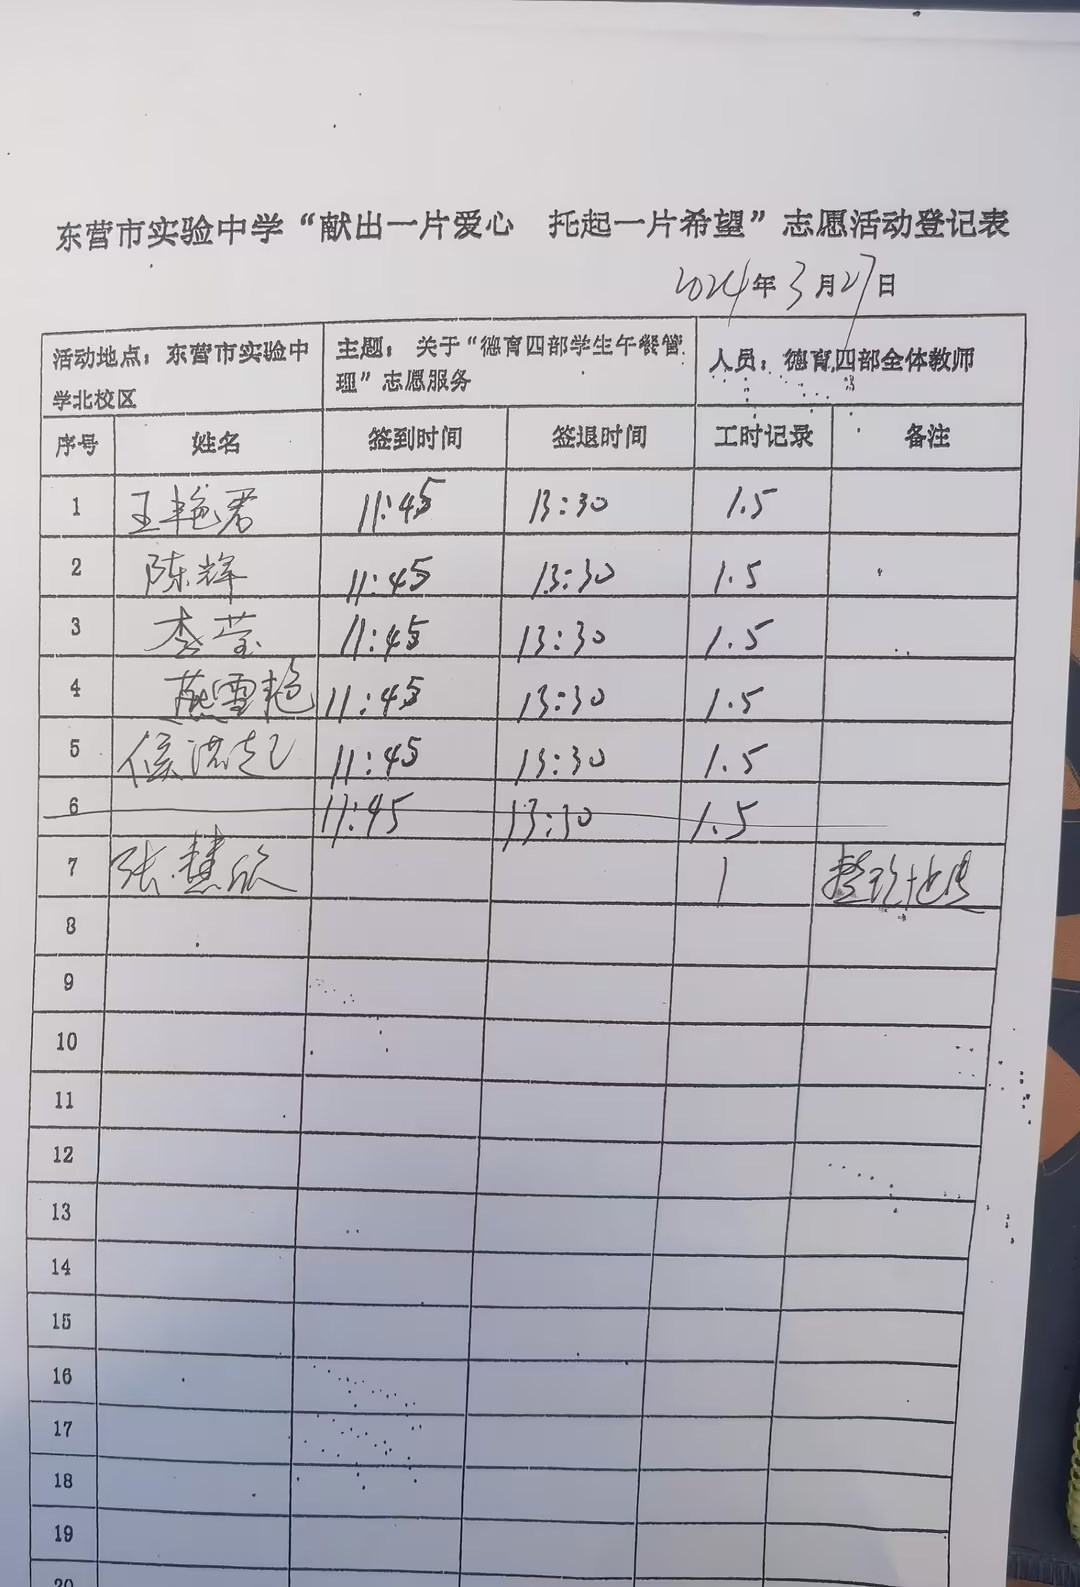 东营市实验中学“献出一片爱心 托起一片希望”志愿活动登记表
2024年3月27日
活动地点：东营市实验中学北校区 主题：关于“德育四部学生午餐管理”志愿服务 人员：德育四部全体教师
序号 姓名 签到时间 签退时间 工时记录 备注
1 王艳君 11:45 13:30 1.5
2 陈辉 11:45 13:30 1.5
3 李莹 11:45 13:30 1.5
4 燕雪艳 11:45 13:30 1.5
5 侯洪起 11:45 13:30 1.5
6 11:45 13:30 1.5
7 张慧欣 1
8
9
10
11
12
13
14
15
16
17
18
19
20